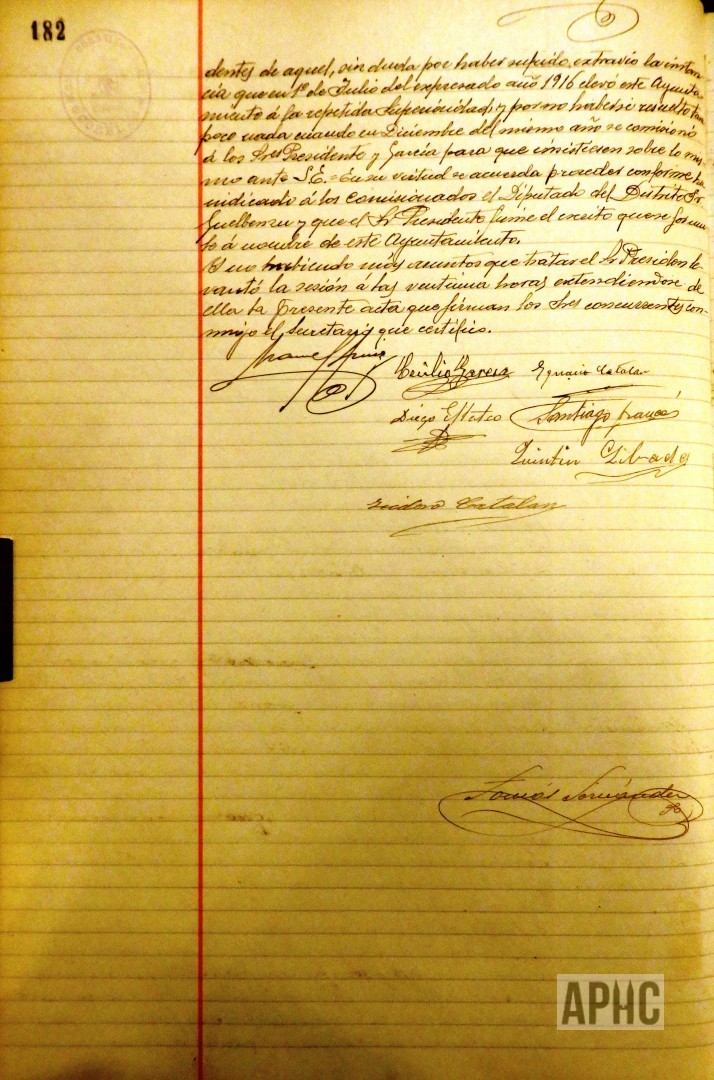 182
dentes de aquel, sin duda por haber sufrido extravío la instan
cia que en 1º de Julio del expresado año 1916 elevó este Ayunta
miento á la repetida Superioridad, y por no haberse resuelto tam
poco nada cuando en Diciembre del mismo año se comisionó
á los Sres Presidente y García para que insistiesen sobre lo mis
mo ante S.E. = En su virtud se acuerda proceder conforme ha
indicado á los comisionados el Diputado del Distrito Sr
Guelbenzu y que el Sr Presidente firme el escrito que se formu
le á nombre de este Ayuntamiento.
Y no habiendo más asuntos que tratar el Sr Presidente le
vantó la sesión á las veintiuna horas extendiéndose de
ella la presente acta que firman los Sres concurrentes con
migo el Secretario que certifico.
Cecilio Ignacio Catalan
Diego Santiago Francés
Quintin Gil
Isidoro Catalan
Tomás Fernández
APHC